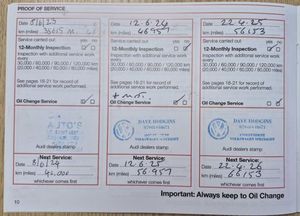 PROOF OF SERVICE
Date 8/6/23
km (miles) 38615 M
Service carried out: yes no
12-Monthly Inspection
Inspection with additional service work every
30,000 / 60,000 / 90,000 / 120,000 km
(20,000 / 40,000 / 60,000 / 80,000 miles)
See pages 18-21 for record of
additional service work performed.
Oil Change Service
Audi dealers stamp
Next Service:
Date
km (miles)
whichever comes first
Date 12.6.24
km (miles) 46957
Service carried out: yes no
12-Monthly Inspection
Inspection with additional service work every
30,000 / 60,000 / 90,000 / 120,000 km
(20,000 / 40,000 / 60,000 / 80,000 miles)
See pages 18-21 for record of
additional service work performed.
+ MOT
Oil Change Service
DAVE HODGINS
Audi dealers stamp
Next Service:
Date 12.6.25
km (miles) 56.957
whichever comes first
Date 22.4.25
km (miles) 56153
Service carried out: yes no
12-Monthly Inspection
Inspection with additional service work every
30,000 / 60,000 / 90,000 / 120,000 km
(20,000 / 40,000 / 60,000 / 80,000 miles)
See pages 18-21 for record of
additional service work performed.
Oil Change Service
DAVE HODGINS
Audi dealers stamp
Next Service:
Date 22.4.26
km (miles) 66153
whichever comes first
10
Important: Always keep to Oil Change